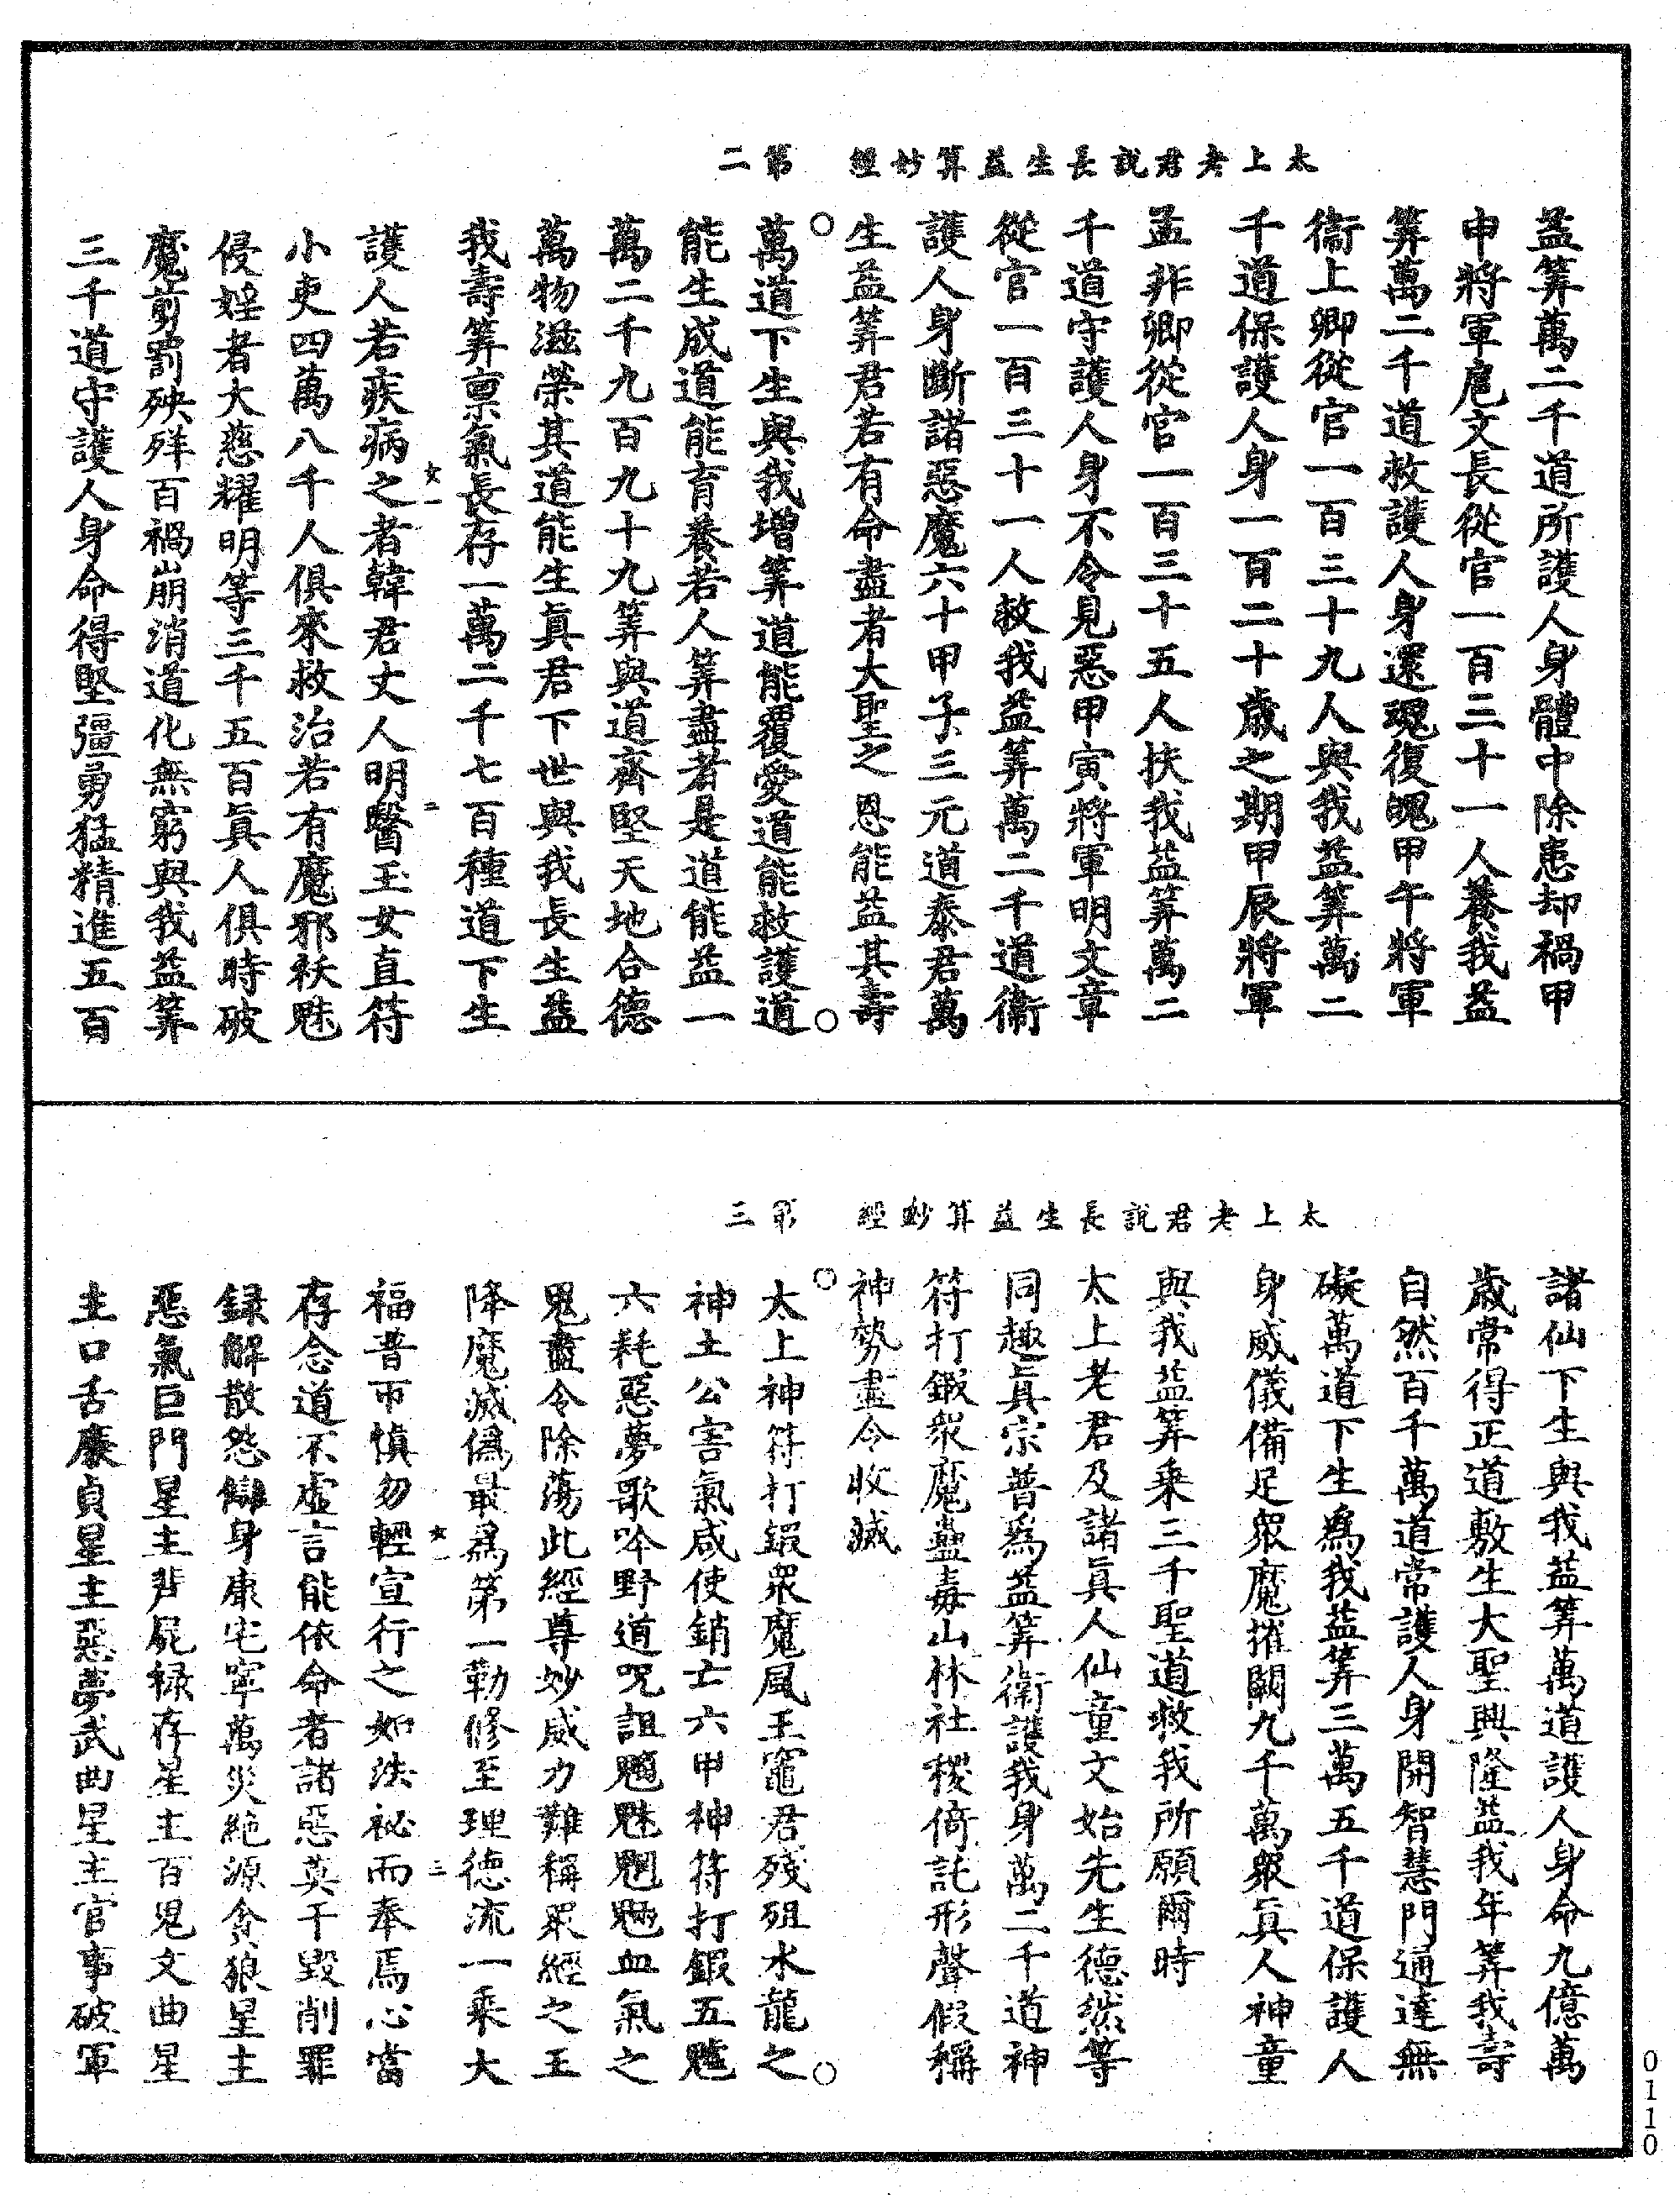 太上老君說長生益算妙經　第二
益筭萬二千道所護人身體中除患却禍甲
申將軍扈文長從官一百三十一人養我益
筭萬二千道救護人身還魂復魄甲午將軍
衞上卿從官一百三十九人與我益筭萬二
千道保護人身一百二十歲之期甲辰將軍
孟非卿從官一百三十五人扶我益筭萬二
千道守護人身不令見惡甲寅將軍明文章
從官一百三十一人救我益筭萬二千道衞
護人身斷諸惡魔六十甲子三元道泰君萬
生益筭君若有命盡者大聖之恩能益其壽
萬道下生與我增筭道能覆愛道能救護道
能生成道能育養若人筭盡者是道能益一
萬二千九百九十九筭與道齊堅天地合德
萬物滋榮其道能生眞君下世與我長生益
我壽筭禀氣長存一萬二千七百種道下生
護人若疾病之者韓君丈人明醫玉女直符
小吏四萬八千人俱來救治若有魔邪祅魅
侵婬者大慈耀明等三千五百眞人俱時破
魔剪罰殃殍百禍崩消道化無窮與我益筭
三千道守護人身命得堅彊勇猛精進五百
太上老君說長生益算妙經　第三
諸仙下生與我益筭萬道護人身命九億萬
歲常得正道敷生大聖興隆益我年筭我壽
自然百千萬道常護人身開智慧門通達無
礙萬道下生爲我益筭三萬五千道保護人
身威儀備足衆魔摧闢九千萬衆眞人神童
與我益筭乗三千聖道救我所願爾時
太上老君及諸眞人仙童文始先生德然等
同趣眞宗普爲益筭衛護我身萬二千道神
符打鍜衆魔蠱毒山林社稷倚託形聲假稱
神勢盡令收滅
太上神符打鍜衆魔風王竈君殘殂水龍之
神土公害氣咸使銷亡六甲神符打鍜五䰡
六耗惡夢歌吟野道呪詛魑魅魍魎血氣之
鬼盡令除蕩此經尊妙威力難稱眾經之王
降魔滅僞最爲第一勤修至理德流一乘大
福普帀慎勿輕宣行之如法祕而奉焉心當
存念道不虛言能依命者諸惡莫干毀削罪
録解散怨讎身康宅寧萬災絶源貪狼星主
惡氣巨門星主飛屍禄存星主百鬼文曲星
主口舌廉貞星主惡夢武曲星主官事破軍
0110